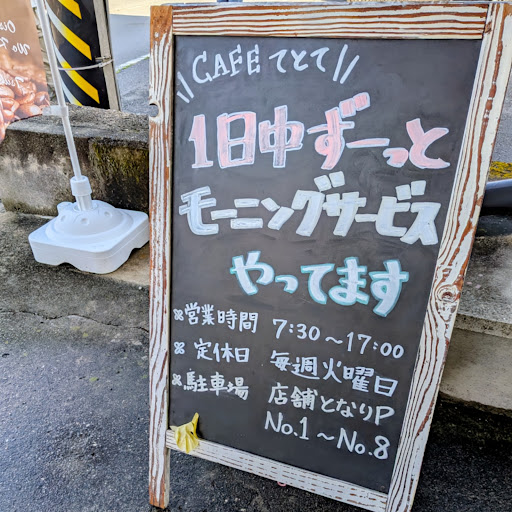 CAFE てとて
1日中ずーっと
モーニングサービス
やってます
営業時間 7:30～17:00
定休日 毎週火曜日
駐車場 店舗となりP
No.1～No.8